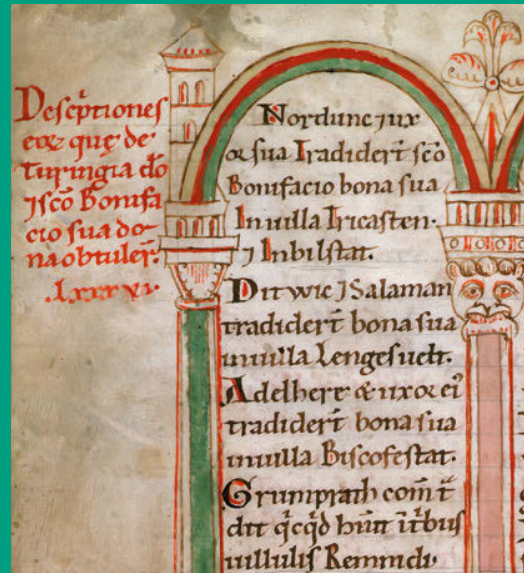 Descẽptiones
eorũ quę de
Turingia dõ
⁊ scõ Bonifa
cio sua do-
na obtuler̃.
.lxxxvi.
Nordunc ⁊ ux
or sua Tradider̃t scõ
Bonifacio bona sua
In uilla Tricasten.
⁊ In bilstat.
Ditwic ⁊ Salaman
tradider̃t bona sua
in uilla Lengesuelt.
Adelhere & uxor ei᷒
tradider̃t bona sua
in uilla Biscofestat.
Grumprath com̃ t̃
dit q̇cq̇d hũit ĩ t̃bus
uillulis Remmidi.